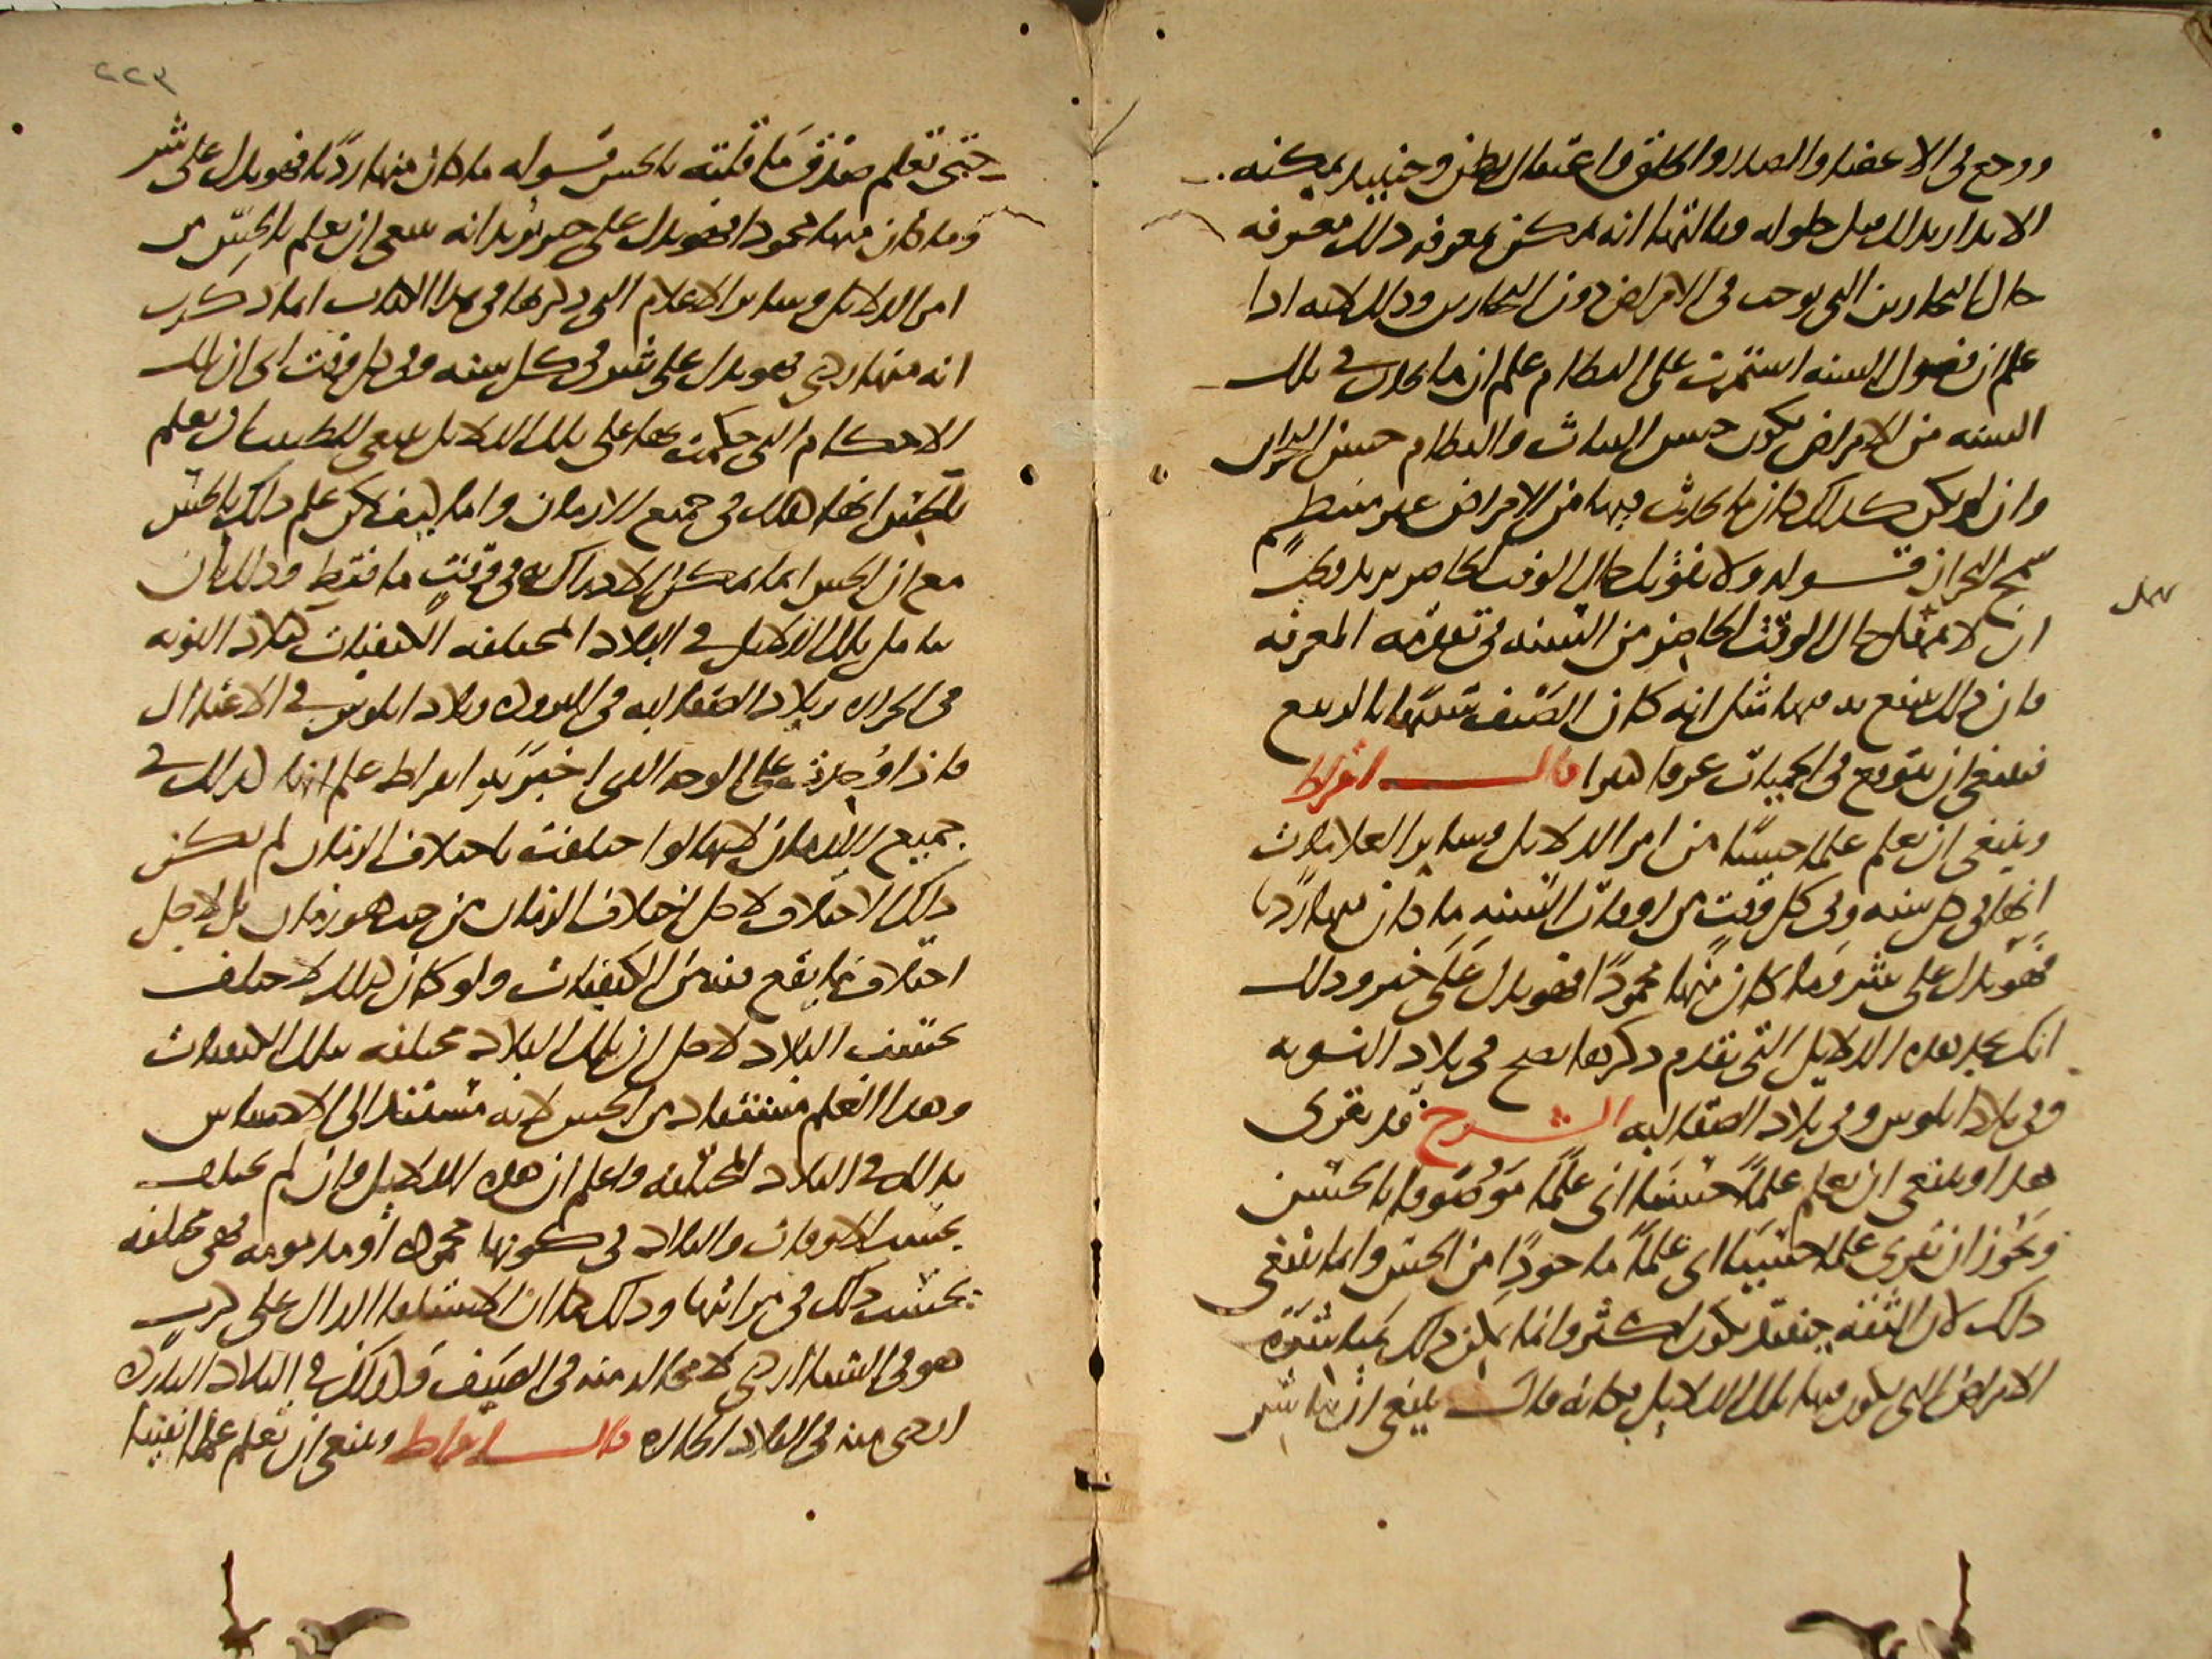 ووجع فى الاعضا والصدر والحلق واعتقال البطن وحينئذ يمكنه
الانذار بذلك قبل حلوله وثالثها انه يمكن بمعرفه ذلك معرفه
حال البحارين التى توجد فى الامراض دون البحارين وذلك لانه اذا
علم ان فصول السنه استمرت على النظام علم ان ما يحدث فى تلك
السنه من الامراض يكون حسن الثبات والنظام حسن البحران
وان لم يكن كذلك كان ما يحدث فيها من الامراض غير منتظم
سمج البحران قوله ولا يفوتك حال الوقت الحاضر يريد
ان لا تغفل حال الوقت الحاضر من السنه فى تقدمه المعرفه
فان ذلك ينتفع به فيها مثل انه كان الصيف شبيها بالربيع
فينبغى ان يتوقع فى الحميات عرقا كثيرا قال ابقراط
وينبغى ان تعلم علما حسيا من امر الدلايل وساير العلامات
انها فى كل سنه وفى كل وقت من اوقات السنه ما كان منها رديا
فهو يدل على شر وما كان منها محمودا فهو يدل على خير وذلك
انك تجد هذه الدلايل التى تقدم ذكرها تصح فى بلاد النوبه
وفى بلاد ايلوس وفى بلاد الصقالبه الشرح قد يقرى
هذا وينبغى ان تعلم علما حسنا اى علما موصوفا بالحسن
ويجوز ان يقرى علما حسيا اى علما ماخوذا من الحس وانما ينبغى
ذلك لان الثقه حينئذ تكون اكثر وانما يمكن ذلك بمباشره
الامراض التى تكون فيها تلك الدلايل فكانه قال ينبغى ان تباشر
٢٢٣
حتى تعلم صدق ما قلته بالحس قوله ما كان منها رديا فهو يدل على شر
وما كان منها محمودا فهو يدل على خير يريد انه ينبغى ان يعلم بالحس من
امر الدلايل وساير الاعلام التى ذكرها فى هذا الكتاب انما ذكرت
انه منها ردى فهو يدل على شر فى كل سنه وفى كل وقت اى ان تلك
الاحكام التى حكمت بها على تلك الدلايل ينبغى للطبيب ان يعلم
بالحس انها كذلك فى جميع الازمان واما كيف يمكن علم ذلك بالحس
مع ان الحس انما يمكن الادراك به فى وقت ما فقط وذلك بان
تامل تلك الدلايل فى البلاد المختلفه الكيفيات كبلاد النوبه
فى الحراره وبلاد الصقالبه فى البروده وبلاد ايلوس فى الاعتدال
فاذا وجدت على الوجه الذى اخبر به ابقراط علم انها كذلك فى
جميع الازمان لانها لو اختلفت باختلاف الازمان لم يكن
ذلك الاختلاف لاجل اختلاف الزمان من حيث هو زمان بل لاجل
اختلاف ما يقع فيه من الكيفيات ولو كان كذلك لاختلف
بحسب البلاد لاجل ان تلك البلاد مختلفه بتلك الكيفيات
وهذا العلم مستفاد من الحس لانه مستند الى الاحساس
بذلك فى البلاد المختلفه واعلم ان هذه الدلايل وان لم تختلف
بحسب الاوقات والبلاد فى كونها محموده او مذمومه فهى مختلفه
بحسب ذلك فى مراتبها وذلك كما ان الاستلقا الدال على كرب
هو فى الشتا اردى لا محاله منه فى الصيف وكذلك فى البلاد البارده
اردى منه فى البلاد الحاره قال ابقراط وينبغى ان تعلم علما يقينا